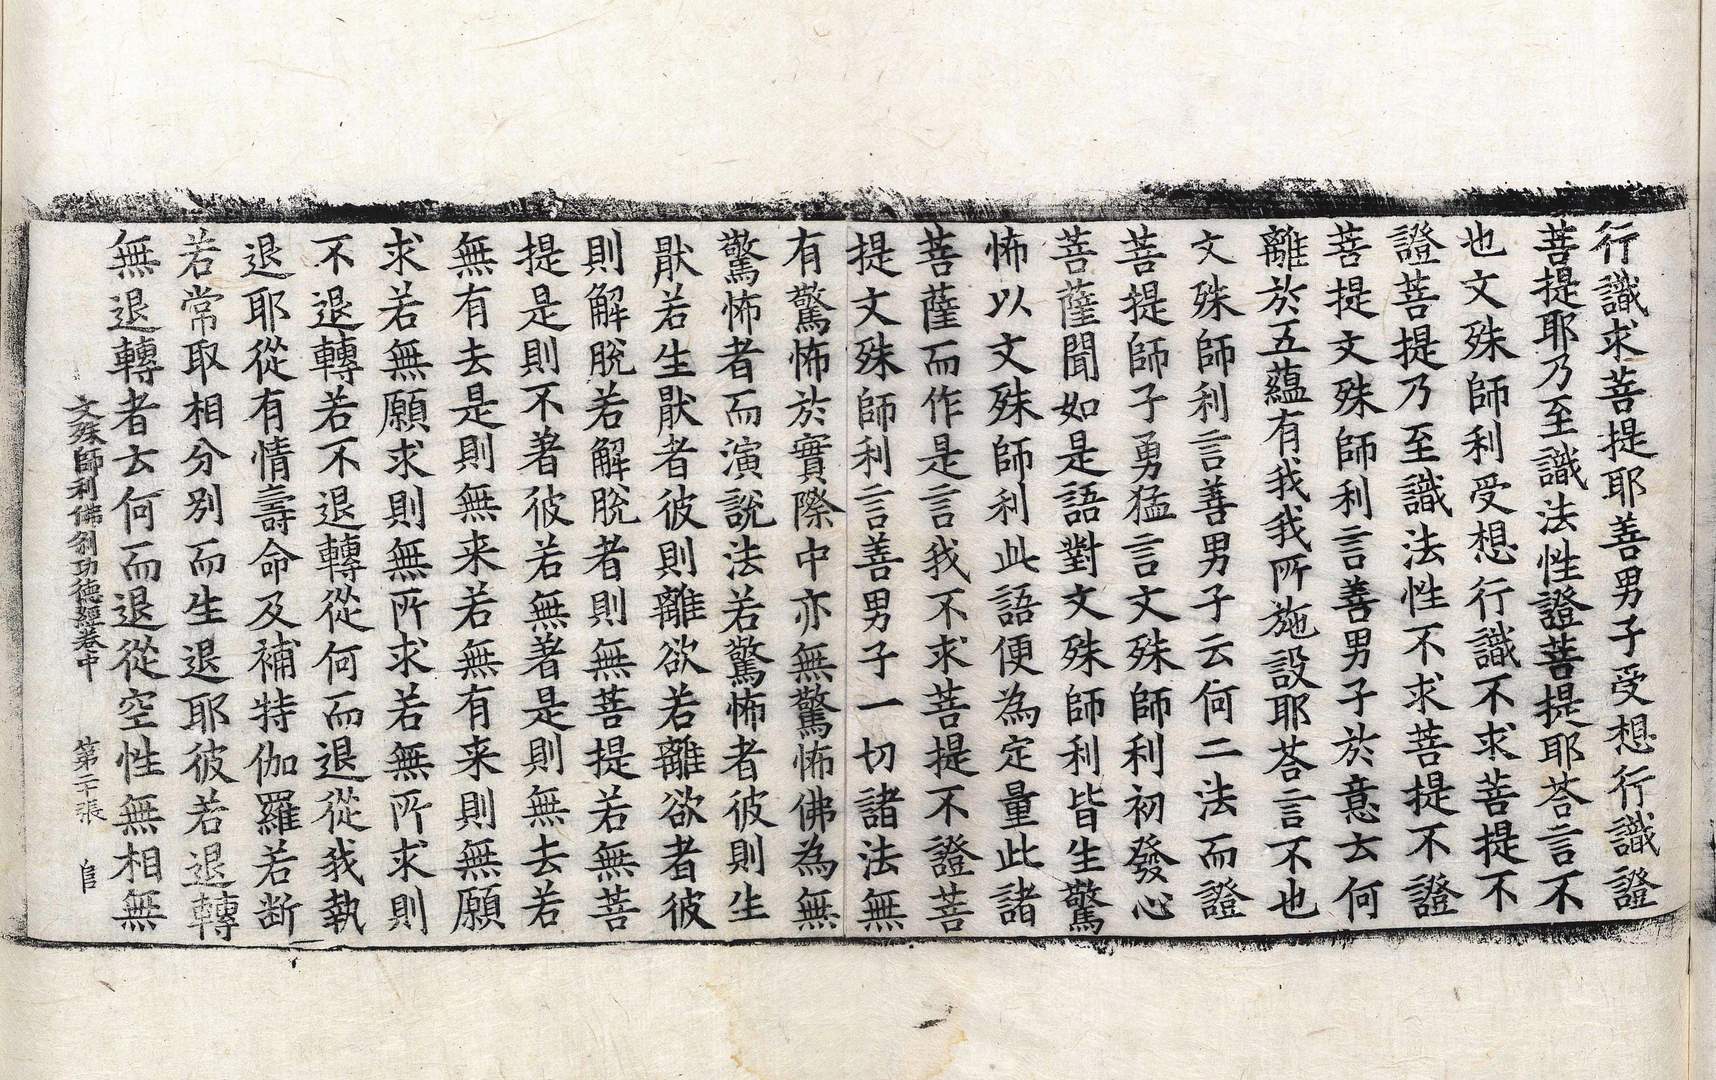 行識求菩提耶善男子受想行識證
菩提耶乃至識法性證菩提耶荅言不
也文殊師利受想行識不求菩提不
證菩提乃至識法性不求菩提不證
菩提文殊師利言善男子於意去何
離於五蘊有我我所施設耶荅言不也
文殊師利言善男子云何二法而證
菩提師子勇猛言文殊師利初發心
菩薩聞如是語對文殊師利皆生驚
怖以文殊師利此語便為定量此諸
菩薩而作是言我不求菩提不證菩
提文殊師利言善男子一切諸法無
有驚怖於實際中亦無驚怖佛為無
驚怖者而演說法若驚怖者彼則生
猒若生猒者彼則離欲若離欲者彼
則解脫若解脫者則無菩提若無菩
提是則不著彼若無著是則無去若
無有去是則無来若無有来則無願
求若無願求則無所求若無所求則
不退轉若不退轉從何而退從我執
退耶從有情壽命及補特伽羅若断
若常取相分別而生退耶彼若退轉
無退轉者去何而退從空性無相無
文殊師利佛刹功德經卷中 第二十張